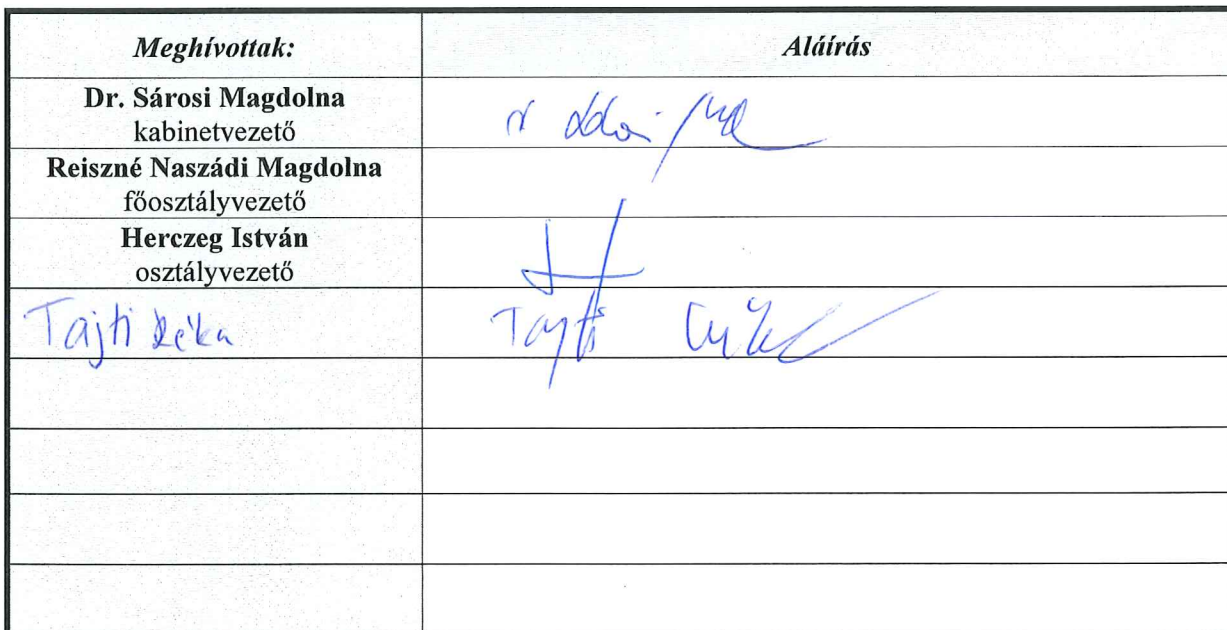 Meghívottak: Aláírás
Dr. Sárosi Magdolna
kabinetvezető
Reiszné Naszádi Magdolna
főosztályvezető
Herczeg István
osztályvezető
Tajti Réka Tajti